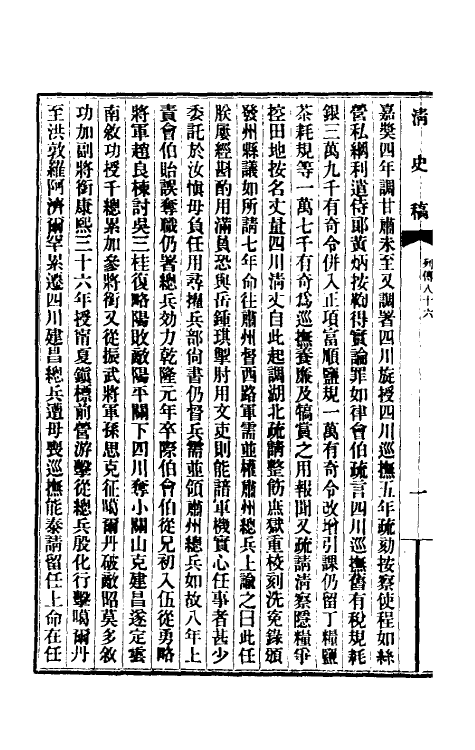 清史稿
列傳八十六
一
嘉獎四年調甘肅未至又調署四川旋授四川巡撫五年疏劾按察使程如絲
營私網利遣侍郎黃炳按鞫得實論罪如律會伯疏言四川巡撫舊有稅規耗
銀三萬九千有奇令併入正項富順鹽規一萬有奇令改增引課仍留丁糧鹽
茶耗規等一萬七千有奇爲巡撫養廉及犒賞之用報聞又疏請清察隱糧爭
控田地按名丈量四川清丈自此起調湖北疏請整飭庶獄重校刻洗冤錄頒
發州縣議如所請七年命往肅州督西路軍需並權肅州總兵上諭之曰此任
朕屢經斟酌用滿員恐與岳鍾琪掣肘用文吏則能諳軍機實心任事者甚少
委託於汝愼毋負任用尋擢兵部尚書仍督兵需並領肅州總兵如故八年上
責會伯貽誤奪職仍署總兵効力乾隆元年卒際伯會伯從兄初入伍從勇略
將軍趙良棟討吳三桂復略陽敗敵陽平關下四川奪小關山克建昌遂定雲
南敘功授千總累加參將銜又從振武將軍孫思克征噶爾丹破敵昭莫多敘
功加副將銜康熙三十六年授甯夏鎭標前營游擊從總兵殷化行擊噶爾丹
至洪敦羅阿濟爾罕累遷四川建昌總兵遭母喪巡撫能泰請留任上命在任